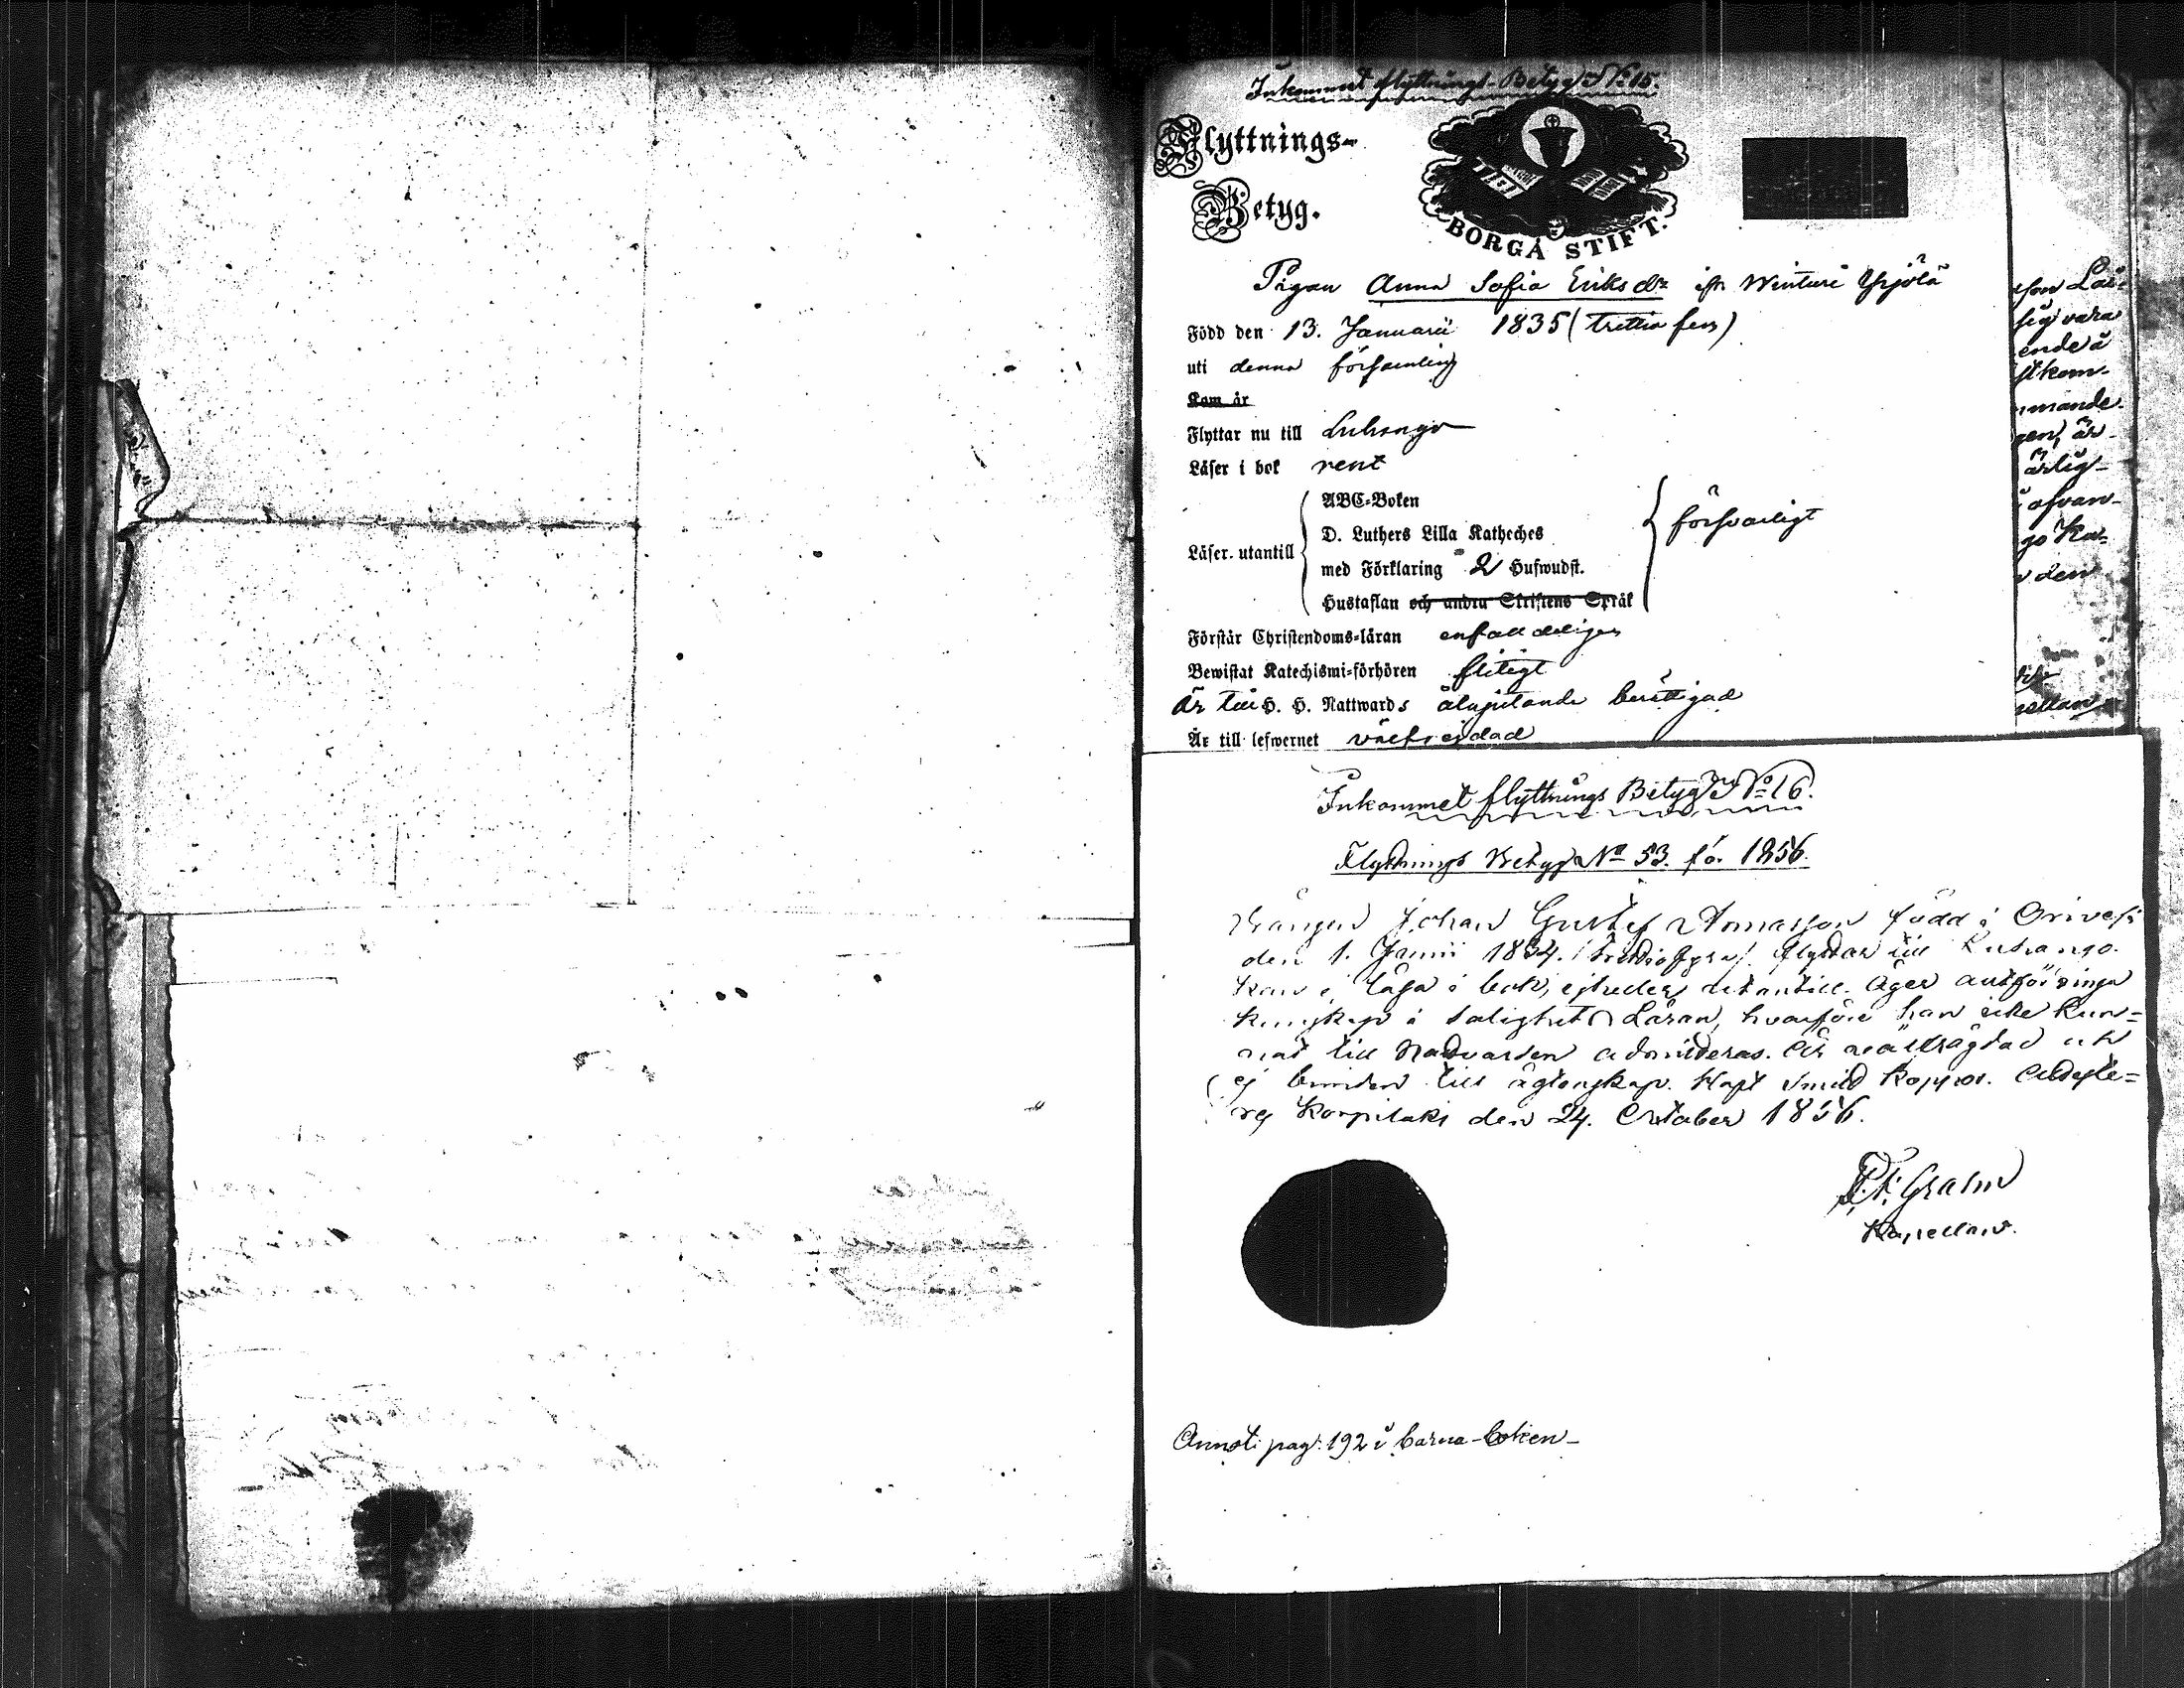 Inkommet flyttnings-Betyg N:o 15.
Flyttnings-
Betyg.
BORGÅ STIFT.
Pigan Anna Sofia Eriksdr ifr Winturi Yrjölä
Född den 13. Januarii 1835 (trettio fem)
uti denna församling
Kom år
Flyttar nu till Luhango
Läser i bok rent
ABC-Boken
D. Luthers Lilla Katheches
Läser utantill
med Förklaring 2 Hufwudst.
Hustaflan och andra Skriftens Språk
försvarligt
Förstår Christendoms-läran enfalldeligen
Bewistat Katechismi-förhören flitigt
Är till H. H. Nattwards åtnjutande berättigad
Är till lefwernet välfrejdad
son Lai-
sig vara
ende å
st kom-
mande.
gen, är
ärlig-
ofvan-
go Ka-
den
ellan
Inkommet flyttnings Betyg N:o 16.
Flyttnings Betyg No 53. för 1856.
Drängen Johan Gustaf Thomasson född i Orivesi
den 1. Junii 1834. (Trettiofyra). flyttar till Luhango.
Kan ej läsa i bok, ej heller utantill. Äger alltför ringa
kunskap i Salighets Läran, hvarföre han icke kun=
nat till Nattvarden admitteras. Är vanfrägdad och
ej bunden till ägtenskap. Haft Smitt koppor. Atteste=
ras Korpilaks den 24. October 1856.
Grahn
Kapellan.
Annot: pag: 192 i barna-boken-